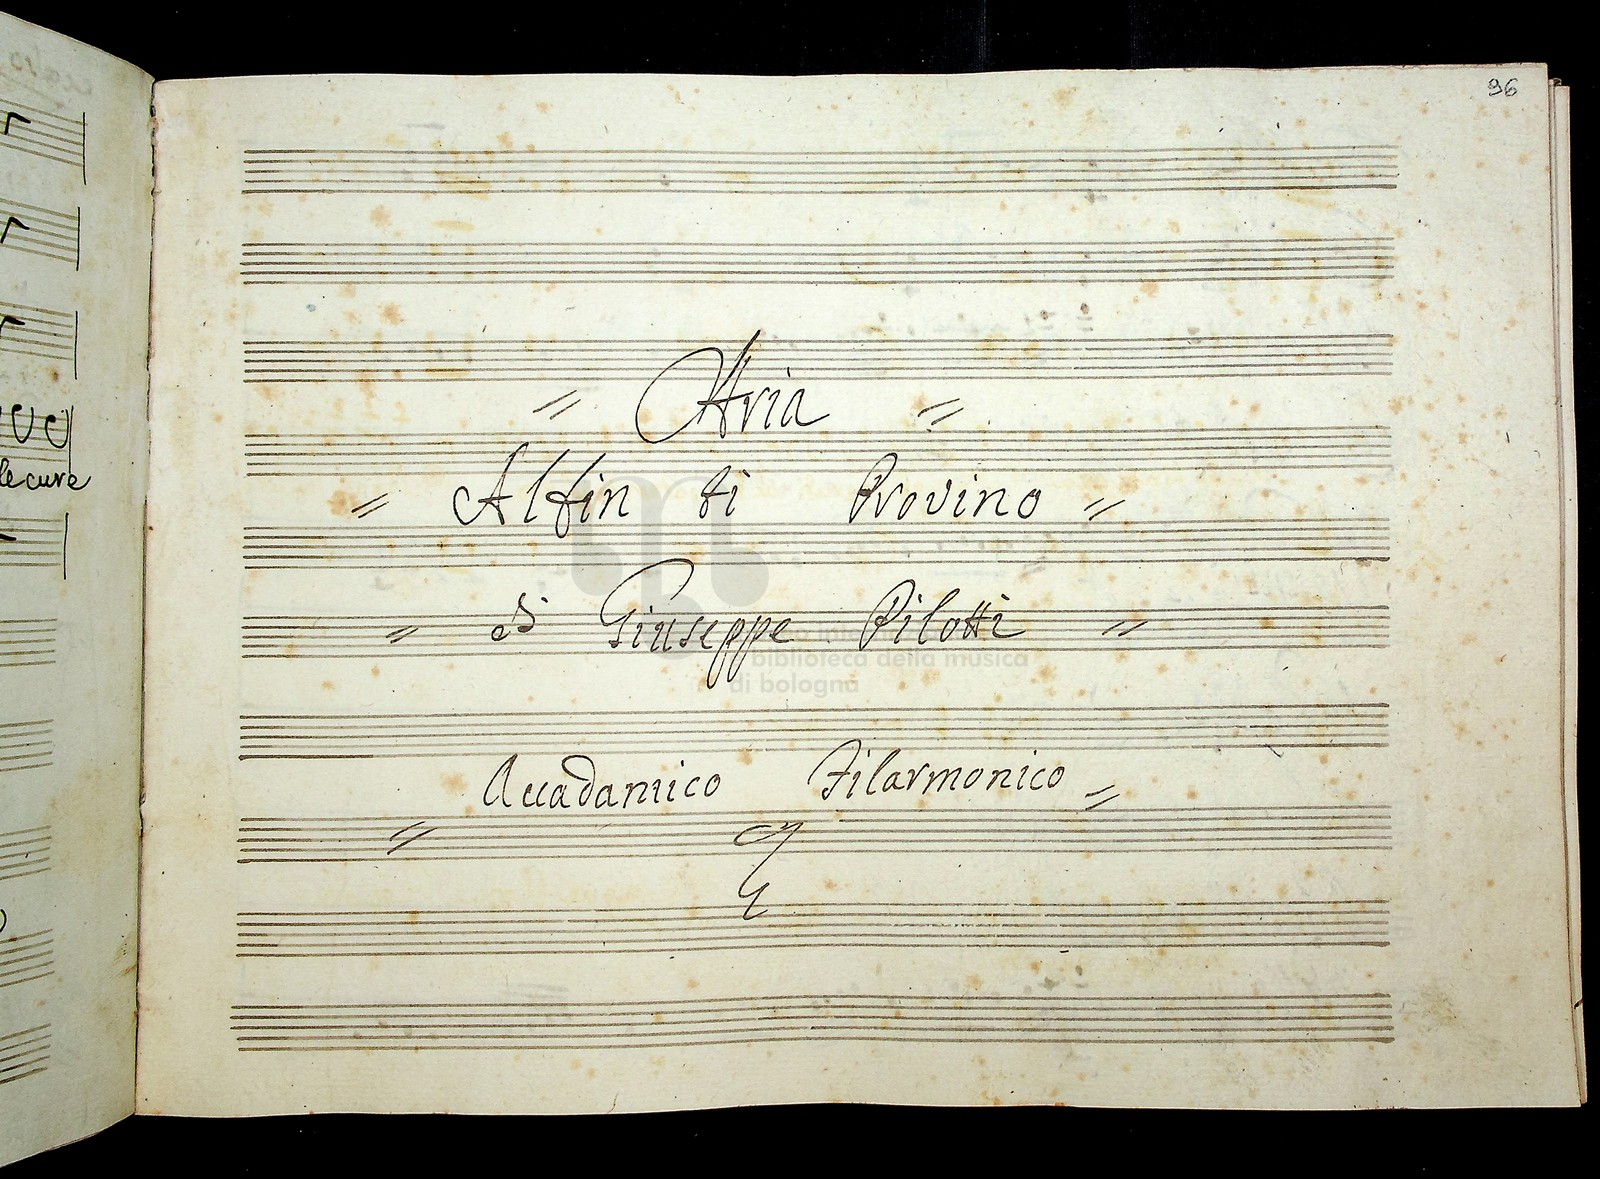 96
Aria
Alfin ti Provino
di Giuseppe Pilotti
Accadamico Filarmonico
le cure
biblioteca della musica
di bologna